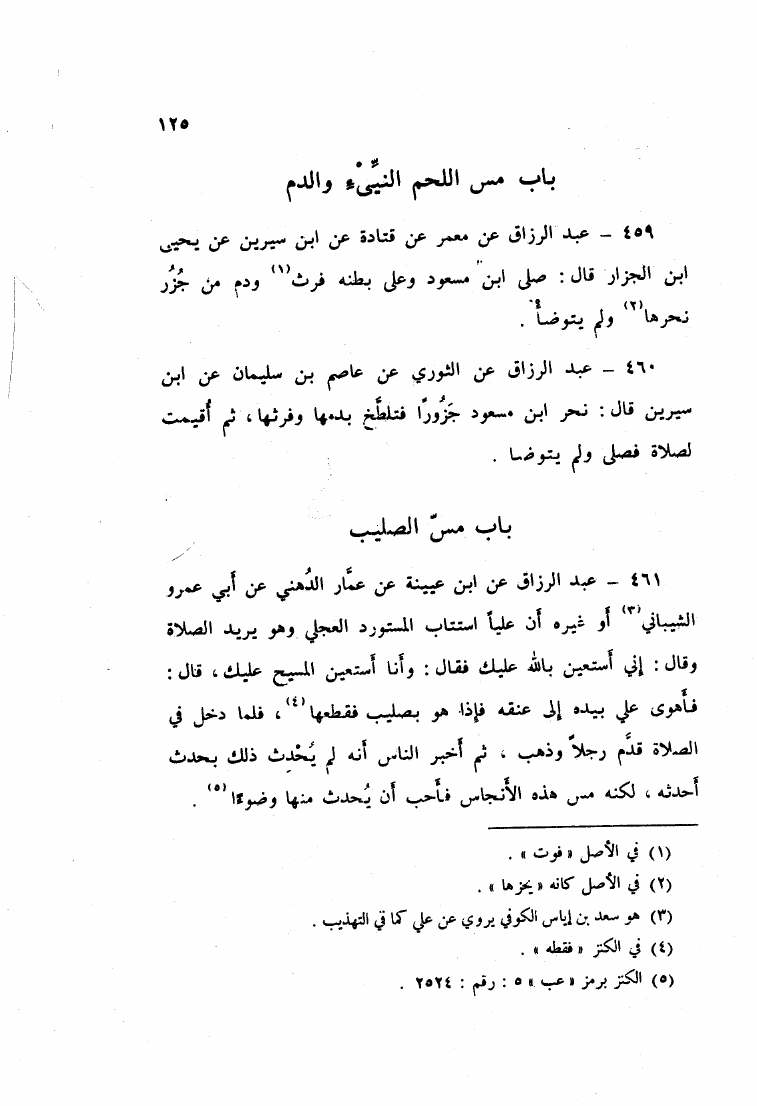 ١٢٥
باب مس اللحم النيِّىْء والدم
٤٥٩ – عبد الرزاق عن معمر عن قتادة عن ابن سيرين عن يحيى
ابن الجزار قال : صلى ابن مسعود وعلى بطنه فرث(١) ودم من جُزُر
نحرها(٢) ولم يتوضأ .
٤٦٠ – عبد الرزاق عن الثوري عن عاصم بن سليمان عن ابن
سيرين قال : نحر ابن مسعود جَزُورًا فتلطَّخ بدمها وفرثها ، ثم أُقيمت
لصلاة فصلى ولم يتوضا .
باب مسّ الصليب
٤٦١ – عبد الرزاق عن ابن عيينة عن عمَّار الدُهني عن أبي عمرو
الشيباني(٣) أو غيره أن علياً استتاب المستورد العجلي وهو يريد الصلاة
وقال : إني أستعين بالله عليك فقال : وأنا أستعين المسيح عليك ، قال :
فأهوى علي بيده إلى عنقه فإذا هو بصليب فقطعها(٤) ، فلما دخل في
الصلاة قدَّم رجلاً وذهب ، ثم أخبر الناس أنه لم يُحْدِث ذلك بحدث
أحدثه ، لكنه مس هذه الأنجاس فأحب أن يُحدث منها وضوءًا(٥) .
(١) في الأصل « فوت » .
(٢) في الأصل كانه « يخزها » .
(٣) هو سعد بن إياس الكوفي يروي عن علي كما في التهذيب .
(٤) في الكنز « فقطه » .
(٥) الكنز برمز « عب » ٥ : رقم : ٢٥٢٤ .